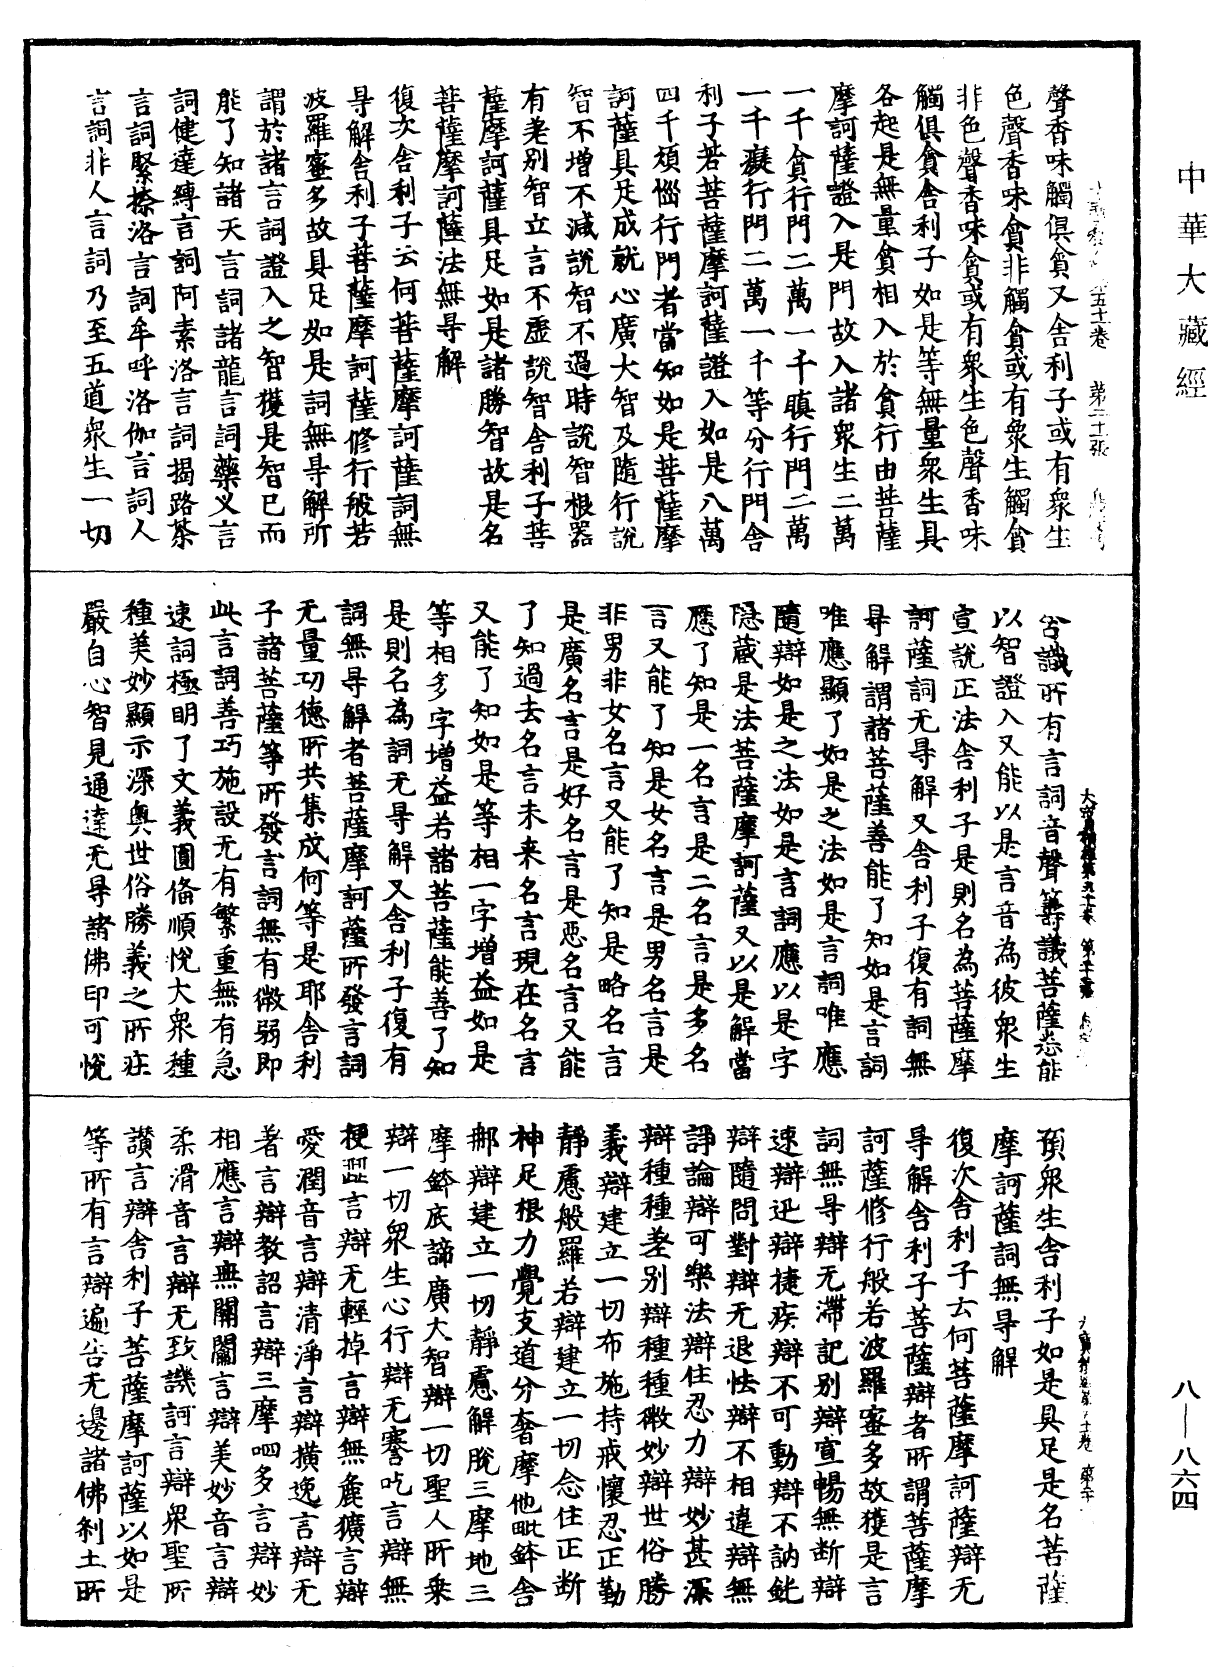 中華大藏經
聲香味觸俱貪又舍利子或有衆生
色聲香味貪非觸貪或有衆生觸貪
非色聲香味貪或有衆生色聲香味
觸俱貪舍利子如是等無量衆生具
各起是無量貪相入於貪行由菩薩
摩訶薩證入是門故入諸衆生二萬
一千貪行門二萬一千瞋行門二萬
一千癡行門二萬一千等分行門舍
利子若菩薩摩訶薩證入如是八萬
四千煩惱行門者當知如是菩薩摩
訶薩具足成就心廣大智及隨行說
智不增不減說智不過時說智根器
有差別智立言不虛說智舍利子菩
薩摩訶薩具足如是諸勝智故是名
菩薩摩訶薩法無㝵解
復次舍利子云何菩薩摩訶薩詞無
㝵解舍利子菩薩摩訶薩修行般若
波羅蜜多故具足如是詞無㝵解所
謂於諸言詞證入之智獲是智已而
能了知諸天言詞諸龍言詞藥义言
詞健達縛言詞阿素洛言詞揭路荼
言詞緊捺洛言詞牟呼洛伽言詞人
言詞非人言詞乃至五道衆生一切
含識所有言詞音聲籌議菩薩悉能
以智證入又能以是言音為彼衆生
宣說正法舍利子是則名為菩薩摩
訶薩詞无㝵解又舍利子復有詞無
㝵解謂諸菩薩善能了知如是言詞
唯應顯了如是之法如是言詞唯應
隨辯如是之法如是言詞應以是字
隱蔵是法菩薩摩訶薩又以是解當
應了知是一名言是二名言是多名
言又能了知是女名言是男名言是
非男非女名言又能了知是略名言
是廣名言是好名言是惡名言又能
了知過去名言未来名言現在名言
又能了知如是等相一字增益如是
等相多字增益若諸菩薩能善了知
是則名為詞无㝵解又舍利子復有
詞無㝵解者菩薩摩訶薩所發言詞
无量功德所共集成何等是耶舍利
子諸菩薩等所發言詞無有微弱即
此言詞善巧施設无有繁重無有急
速詞極明了文義圓俻順悅大衆種
種美妙顯示深奥世俗勝義之所莊
嚴自心智見通達无㝵諸佛印可悅
預衆生舍利子如是具足是名菩薩
摩訶薩詞無㝵解
復次舍利子云何菩薩摩訶薩辯无
㝵解舍利子菩薩辯者所謂菩薩摩
訶薩修行般若波羅蜜多故獲是言
詞無㝵辯无滯記別辯宣暢無斷辯
速辯迅辯捷疾辯不可動辯不訥鈋
辯隨問對辯无退怯辯不相違辯無
諍論辯可樂法辯住忍力辯妙甚深
辯種種差別辯種種微妙辯世俗勝
義辯建立一切布施持戒懷忍正勤
靜慮般羅若辯建立一切念住正断
神足根力覺支道分奢摩他毗鉢舍
那辯建立一切靜慮解脫三摩地三
摩鉢底諦廣大智辯一切聖人所乗
辯一切衆生心行辯无謇吃言辯無
梗澁言辯无輕掉言辯無麁獷言辯
愛潤音言辯清淨言辯橫逸言辯无
著言辯教詔言辯三摩呬多言辯妙
相應言辯無關闔言辯美妙音言辯
柔滑音言辯无致譏訶言辯衆聖所
讃言辯舍利子菩薩摩訶薩以如是
等所有言辯遍告无邊諸佛剎土所
八—八六四